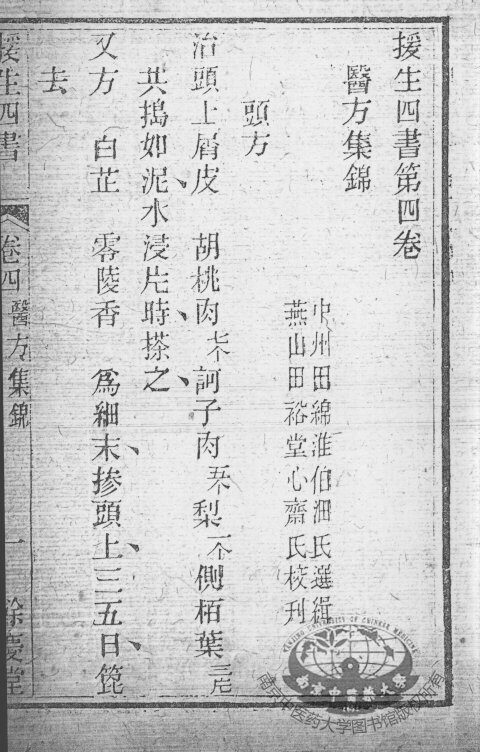 援生四書第四卷
醫方集錦
中州田綿淮伯沺氏選緝
燕山田裕堂心齋氏校刊
頭方
治頭上屑皮 胡桃肉七个訶子肉五个梨一个側栢葉三片
共搗如泥水浸片時搽之
又方 白芷 零陵香 為細末摻頭上三五日篦
去
援生四書 卷四醫方集錦 一 餘慶堂
NANJING UNIVERSITY OF CHINESE MEDICINE
南京中醫藥大學
南京中医药大学图书馆版权所有